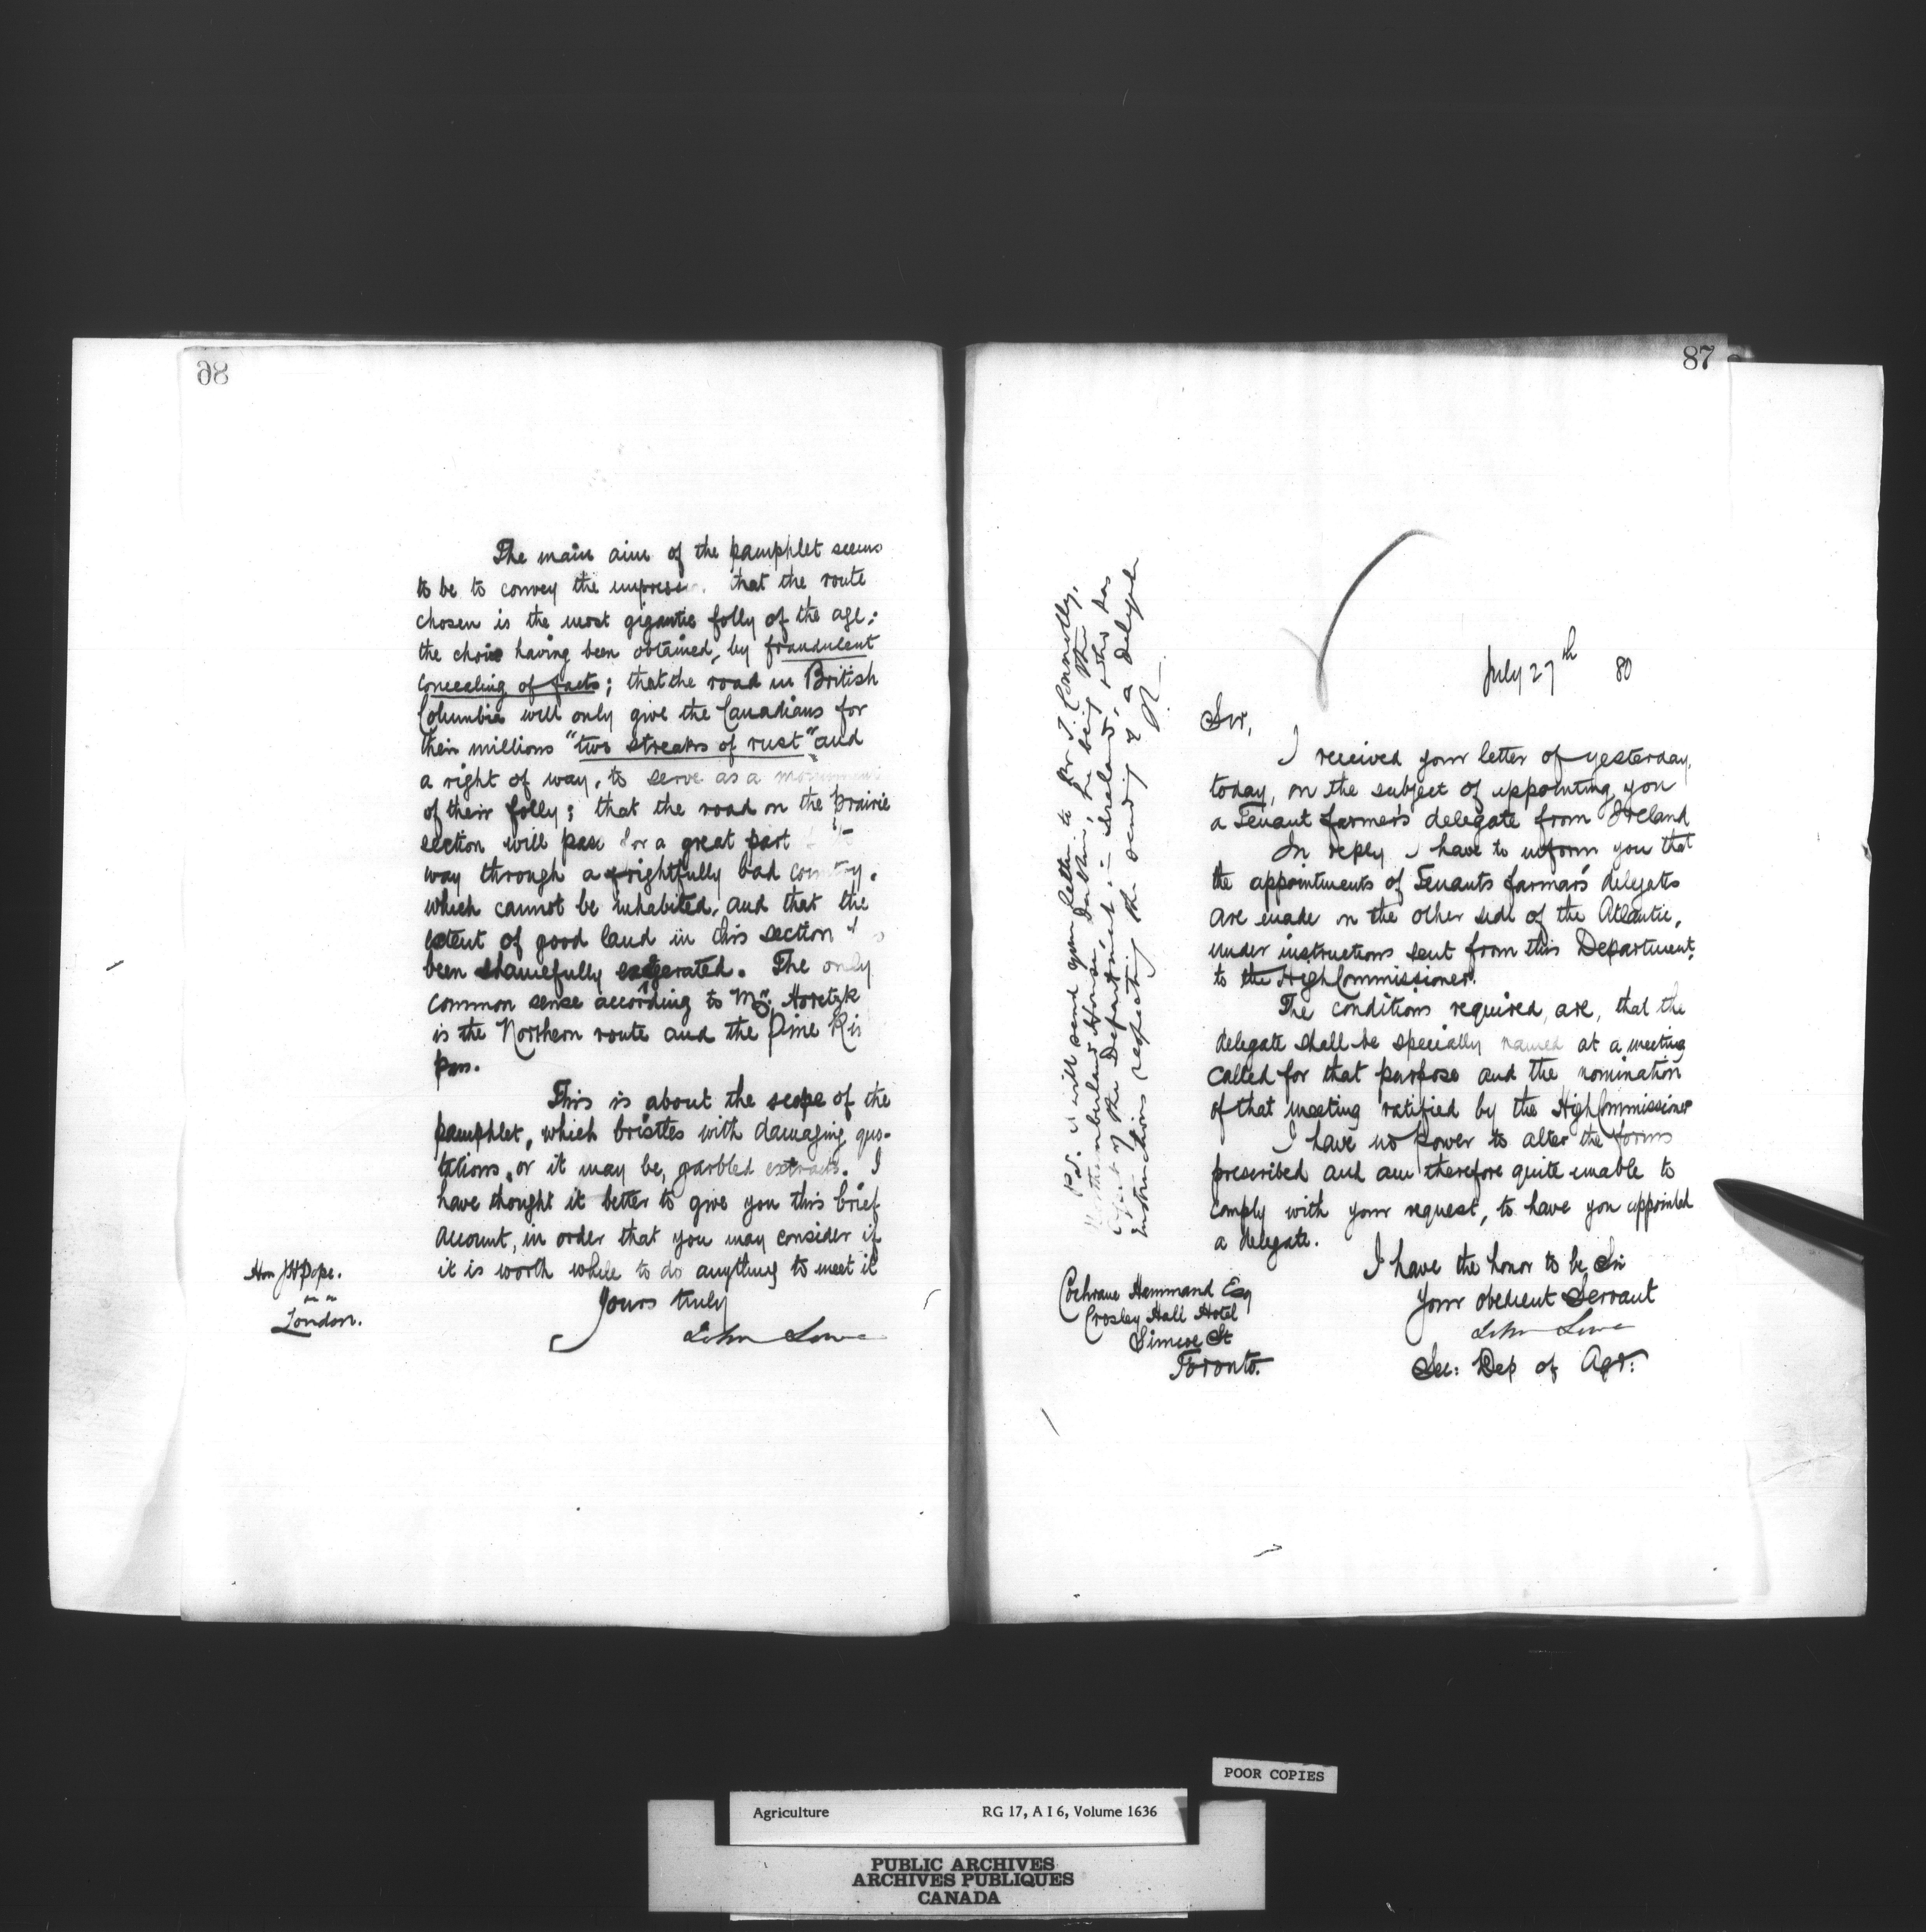 86
The main aim of the pamphlet seems
to be to convey the that the route
chosen is the most gigantic folly of the age;
the choice having been obtained, by fraudulent
concealing of facts; that the road in British
Columbia will only give the Canadians for
their millions "two streaks of rust" and
a right of way, to serve as a monument
of their folly; that the road on the prairie
section will pass for a great part
way through a frightfully bad country.
which cannot be inhabited, and that the
extent of good land in this section
been shamefully exagerated. The only
common sense according to Mr. Horetzk
is the Northern route and the Pine Riv
pass.
This is about the scope of the
pamphlet, which bristles with damaging quo-
tations, or it may be, garbled extracts. I
have thought it better to give you this brief
account, in order that you may consider if
it is worth while to do anything to meet it
Yours truly
John Lowe
Hon J H Pope.
London.
87
July 27th 80
Sir,
I received your letter of yesterday,
today, on the subject of appointing you
a Tenant farmer's delegate from Ireland
In reply I have to inform you that
the appointments of Tenants farmar's delegates
are made on the other side of the Atlantic,
under instructions sent from this Department,
to the High Commissioner.
The conditions required, are, that the
delegate shall be specially named at a meeting
called for that purpose and the nomination
of that meeting ratified by the High Commissioner
I have no power to alter the forms
prescribed and am therefore quite unable to
comply with your request, to have you appointed
a delegate.
I have the honor to be Sir
Your obedient Servant
John Lowe
Sec: Dep of Agr:
Cochrane Hammand Esq
Crosley Hall Hotel
Simcoe St
Toronto.
P.S. I will send your letter to Mr T. Connolly,
Northumberland House, Dublin, he being the
Agent of the Department in Ireland, who has
instructions respecting the sending of a delegate
POOR COPIES
Agriculture RG 17, A I 6, Volume 1636
PUBLIC ARCHIVES
ARCHIVES PUBLIQUES
CANADA